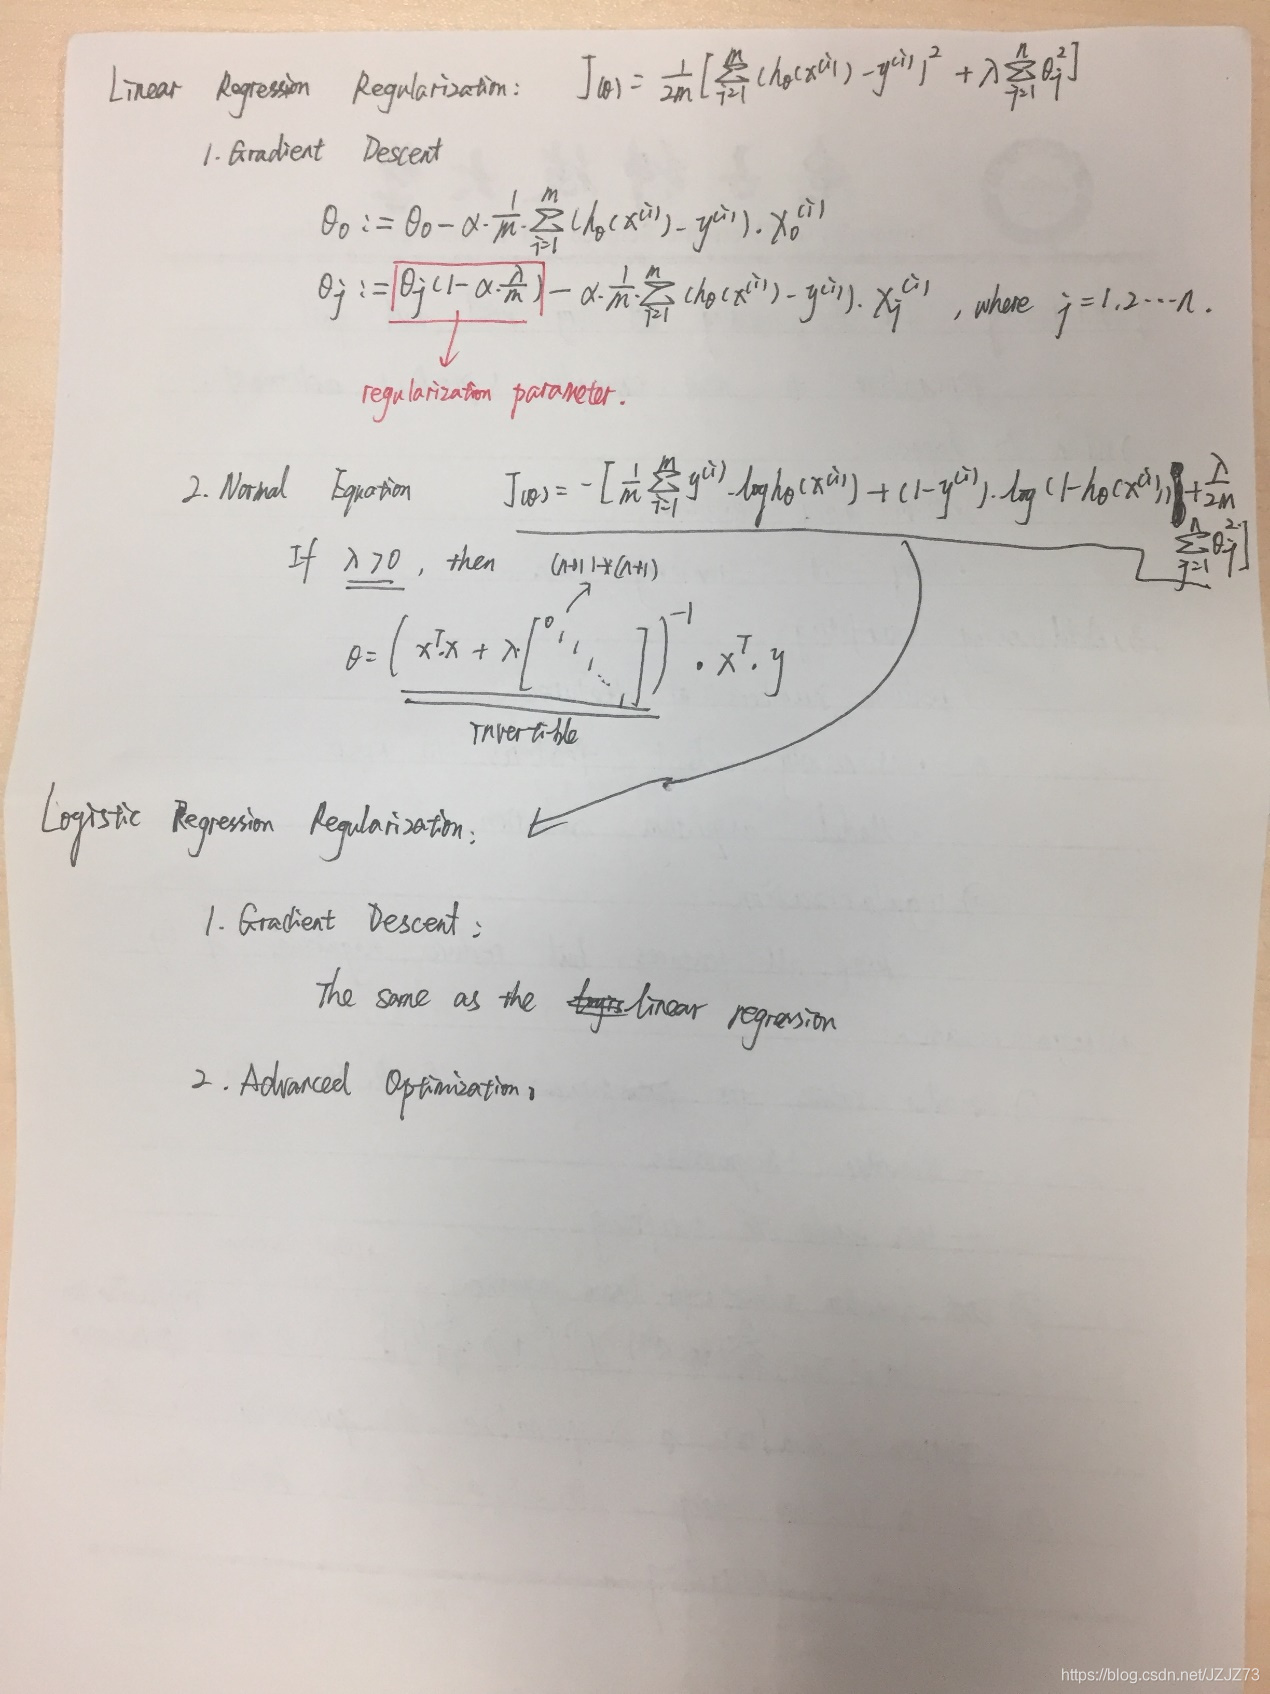 Linear Regression Regularization: J(θ) = 1/2m [ Σ_{i=1}^{m} (hθ(x^(i)) - y^(i))^2 + λ Σ_{j=1}^{n} θj^2 ]
1. Gradient Descent
θ0 := θ0 - α · 1/m · Σ_{i=1}^{m} (hθ(x^(i)) - y^(i)) · x0^(i)
θj := θj (1 - α · λ/m) - α · 1/m · Σ_{i=1}^{m} (hθ(x^(i)) - y^(i)) · xj^(i) , where j = 1,2 ... n .
regularization parameter.
2. Normal Equation J(θ) = -[ 1/m Σ_{i=1}^{m} y^(i) · log hθ(x^(i)) + (1 - y^(i)) · log (1 - hθ(x^(i))) + λ/2m
Σ_{j=1}^{n} θj^2 ]
If λ > 0 , then (n+1) * (n+1)
θ = ( x^T·x + λ · [ 0 1 1 1 ... 1 ] )^-1 · x^T · y
invertible
Logistic Regression Regularization:
1. Gradient Descent:
The same as the linear regression
2. Advanced Optimization:
https://blog.csdn.net/JZJZ73